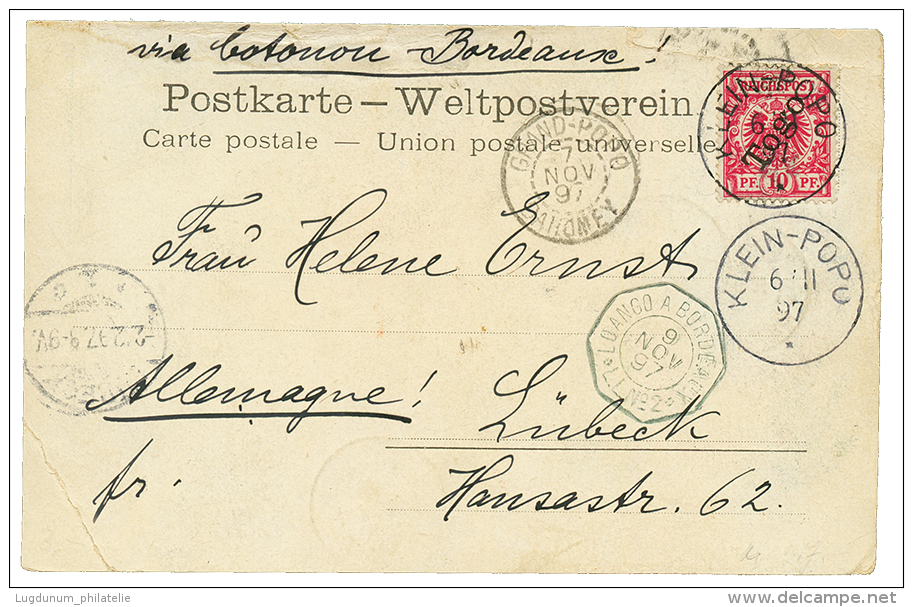 via Cotonou - Bordeaux!
Postkarte – Weltpostverein.
Carte postale – Union postale universelle
REICHSPOST
KLEIN-POPO
Togo
PF. 10 PF.
GRAND-POPO
7
NOV
97
DAHOMEY
Frau Helene Ernst
KLEIN-POPO
6/11
97
*
LOANGO A BORDEAUX
9
NOV
97
L.L. Nº2
2.12.97.8-9V.
Allemagne! Lübeck
fr. Hansastr. 62.
Lugdunum_philatelie
www.delcampe.net